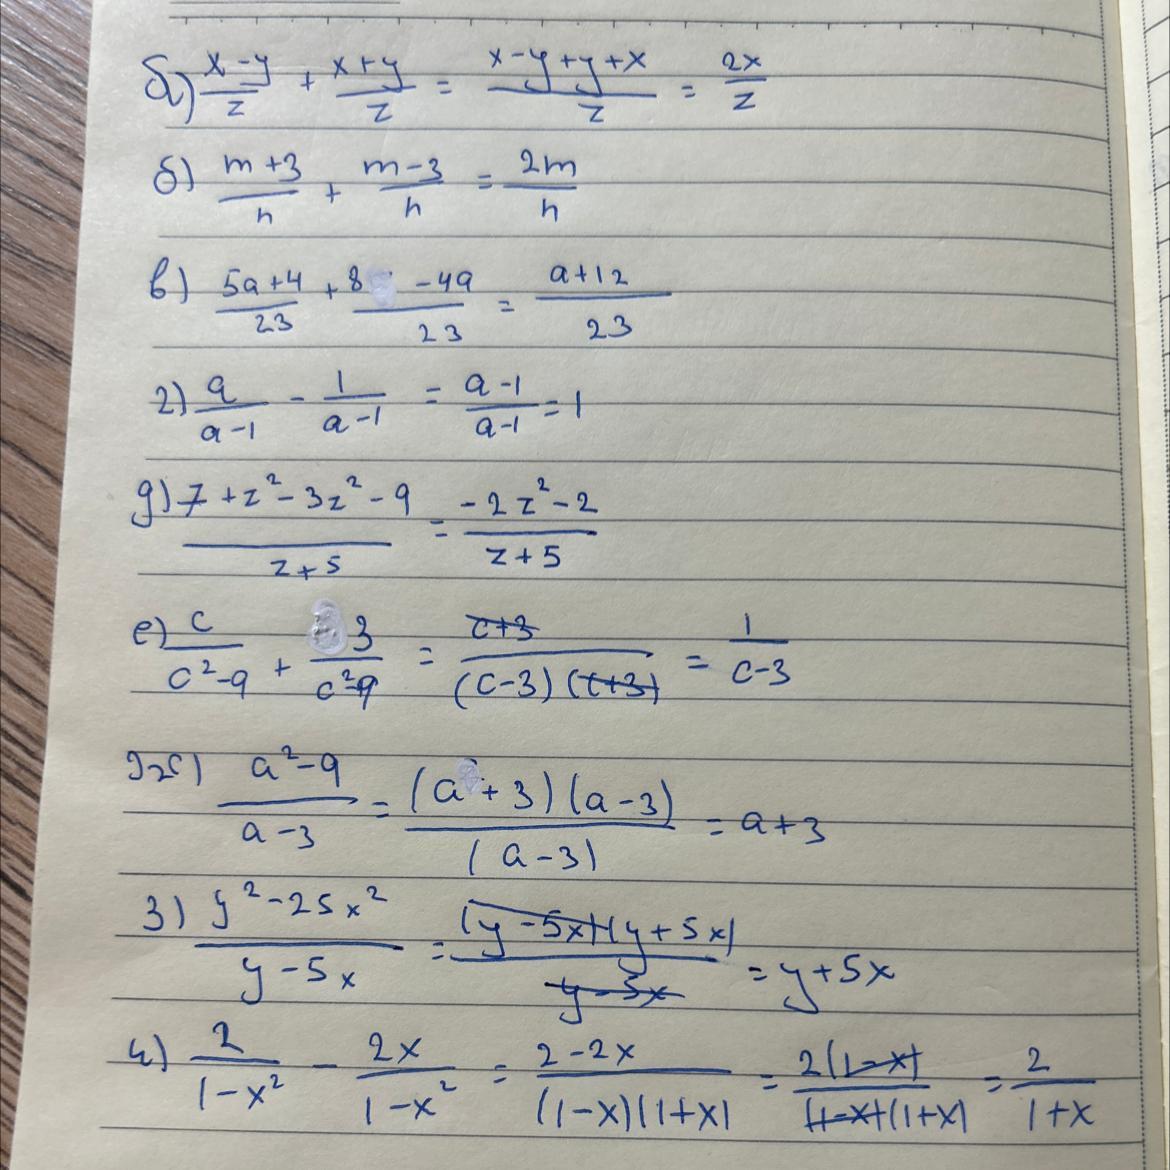 а) (x-y)/z + (x+y)/z = (x-y+y+x)/z = 2x/z
б) (m+3)/n + (m-3)/n = 2m/n
в) (5a+4)/23 + (8-4a)/23 = (a+12)/23
г) a/(a-1) - 1/(a-1) = (a-1)/(a-1) = 1
д) (7+z²-3z²-9)/(z+5) = (-2z²-2)/(z+5)
е) c/(c²-9) + 3/(c²-9) = (c+3)/((c-3)(c+3)) = 1/(c-3)
ж) (a²-9)/(a-3) = ((a+3)(a-3))/(a-3) = a+3
з) (y²-25x²)/(y-5x) = ((y-5x)(y+5x))/(y-5x) = y+5x
и) 2/(1-x²) - 2x/(1-x²) = (2-2x)/((1-x)(1+x)) = 2(1-x)/((1-x)(1+x)) = 2/(1+x)